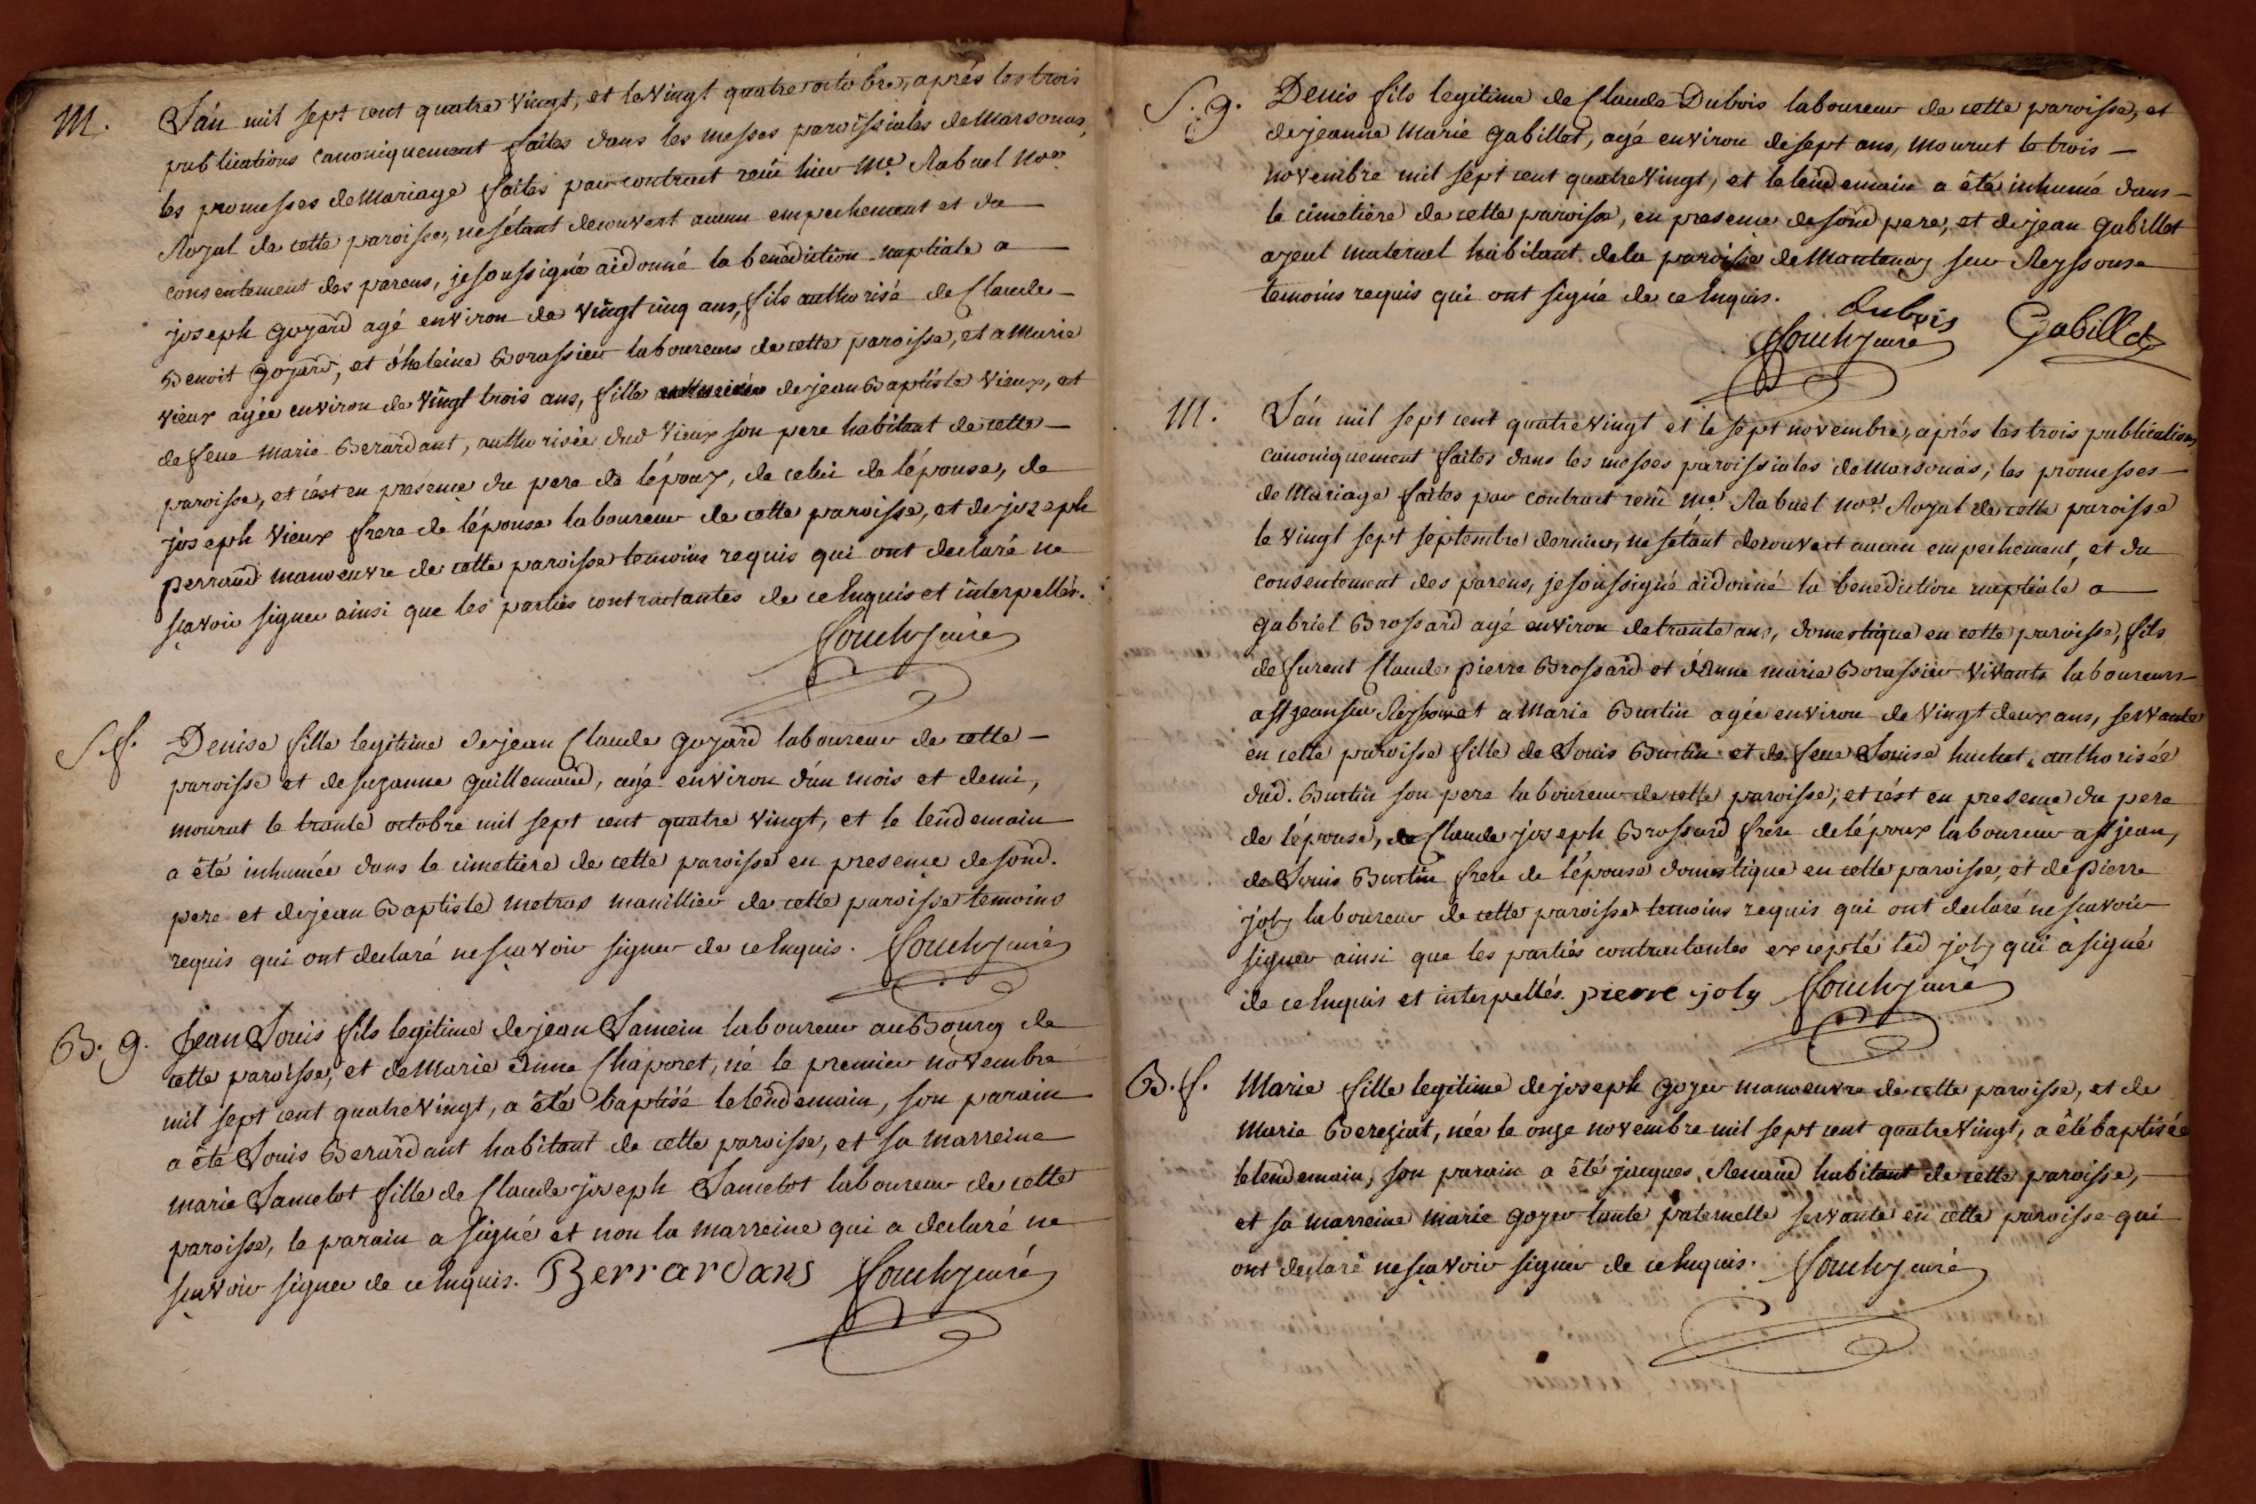 M. L'an mil sept cent quatre vingt, et le vingt quatre octobre, aprés les trois
publications canoniquement faites dans les messes paroissiales de Marsonas,
les promesses de Mariage faites par contract reçu hier Me. Rabuel Nore
Royal de cette paroisse, ne s'étant decouvert aucun empechement et du
consentement des parens, je soussigné ai donné la benediction nuptiale a
joseph goyard agé environ de vingt cinq ans, fils authorisé de Claude
Benoit goyard, et d'heleine Borassier laboureurs de cette paroisse, et a Marie
vieux agée environ de vingt trois ans, fille de jean Baptiste vieux, et
de feue marie Berardant, authorisée dud vieux son pere habitant de cette
paroisse, et c'est en presence du pere de l'époux, de celui de l'épouse, de
joseph vieux frere de l'épouse laboureur de cette paroisse, et de joseph
perraud manoeuvre de cette paroisse temoins requis qui ont declaré ne
sçavoir signer ainsi que les parties contractantes de ce enquis et interpellés.
Couchy curé
S. f. Denise fille legitime de jean Claude goyard laboureur de cette
paroisse et de suzanne guillemaud, agé environ d'un mois et demi,
mourut le trente octobre mil sept cent quatre vingt, et le lendemain
a été inhumée dans le cimetiere de cette paroisse en presence de sond.
pere et de jean Baptiste metras manillier de cette paroisse temoins
requis qui ont declaré ne sçavoir signer de ce enquis. Couchy curé
B. g. Jean Louis fils legitime de jean Lamein laboureur au Bourg de
cette paroisse, et de Marie Anne Chaporet, né le premier novembre
mil sept cent quatre vingt, a été baptisé le lendemain, son parain
a été Louis Berardant habitant de cette paroisse, et sa marreine
marie Lamelot fille de Claude joseph Lamelot laboureur de cette
paroisse, le parain a signé et non la marreine qui a declaré ne
sçavoir signer de ce enquis. Berrardans Couchy curé
S. g. Denis fils legitime de Claude Dubois laboureur de cette paroisse, et
de jeanne Marie gabillet, agé environ de sept ans, mourut le trois
novembre mil sept cent quatre vingt, et le lendemain a été inhumé dans
le cimetiere de cette paroisse, en presence de sond pere, et de jean gabillet
ayeul maternel habitant de la paroisse de Montenay sur Reyssouse
temoins requis qui ont signé de ce enquis.
Dubois
Couchy curé Gabillet
M. L'an mil sept cent quatre vingt et le sept novembre, aprés les trois publications
canoniquement faites dans les messes paroissiales de Marsonas, les promesses
de Mariage faites par contract reçu Me. Rabuel Nore. Royal de cette paroisse
le vingt sept septembre dernier, ne s'étant decouvert aucun empechement, et du
consentement des parens, je soussigné ai donné la benediction nuptiale a
gabriel Brossard agé environ de trente ans, domestique en cette paroisse, fils
de furent Claude pierre Brossard et d'Anne marie Borassier vivants laboureurs
a st jean sur Reyssouse et a Marie Burtin agée environ de vingt deux ans, servante
en cette paroisse fille de Louis Burtin et de feue Louise huchet, authorisée
dud. Burtin son pere laboureur de cette paroisse; et c'est en presence du pere
de l'épouse, de Claude joseph Brossard frere de l'époux laboureur a st jean,
de Louis Burtin frere de l'épouse domestique en cette paroisse, et de pierre
joly laboureur de cette paroisse temoins requis qui ont declaré ne sçavoir
signer ainsi que les parties contractantes excepté led joly qui a signé
de ce enquis et interpellés. pierre joly Couchy curé
B. f. Marie fille legitime de joseph goyer manoeuvre de cette paroisse, et de
Marie Bereziat, née le onze novembre mil sept cent quatre vingt, a été baptisée
le lendemain, son parain a été jacques Renaud habitant de cette paroisse,
et sa marreine marie goyer tante paternelle servante en cette paroisse qui
ont declaré ne sçavoir signer de ce enquis. Couchy curé